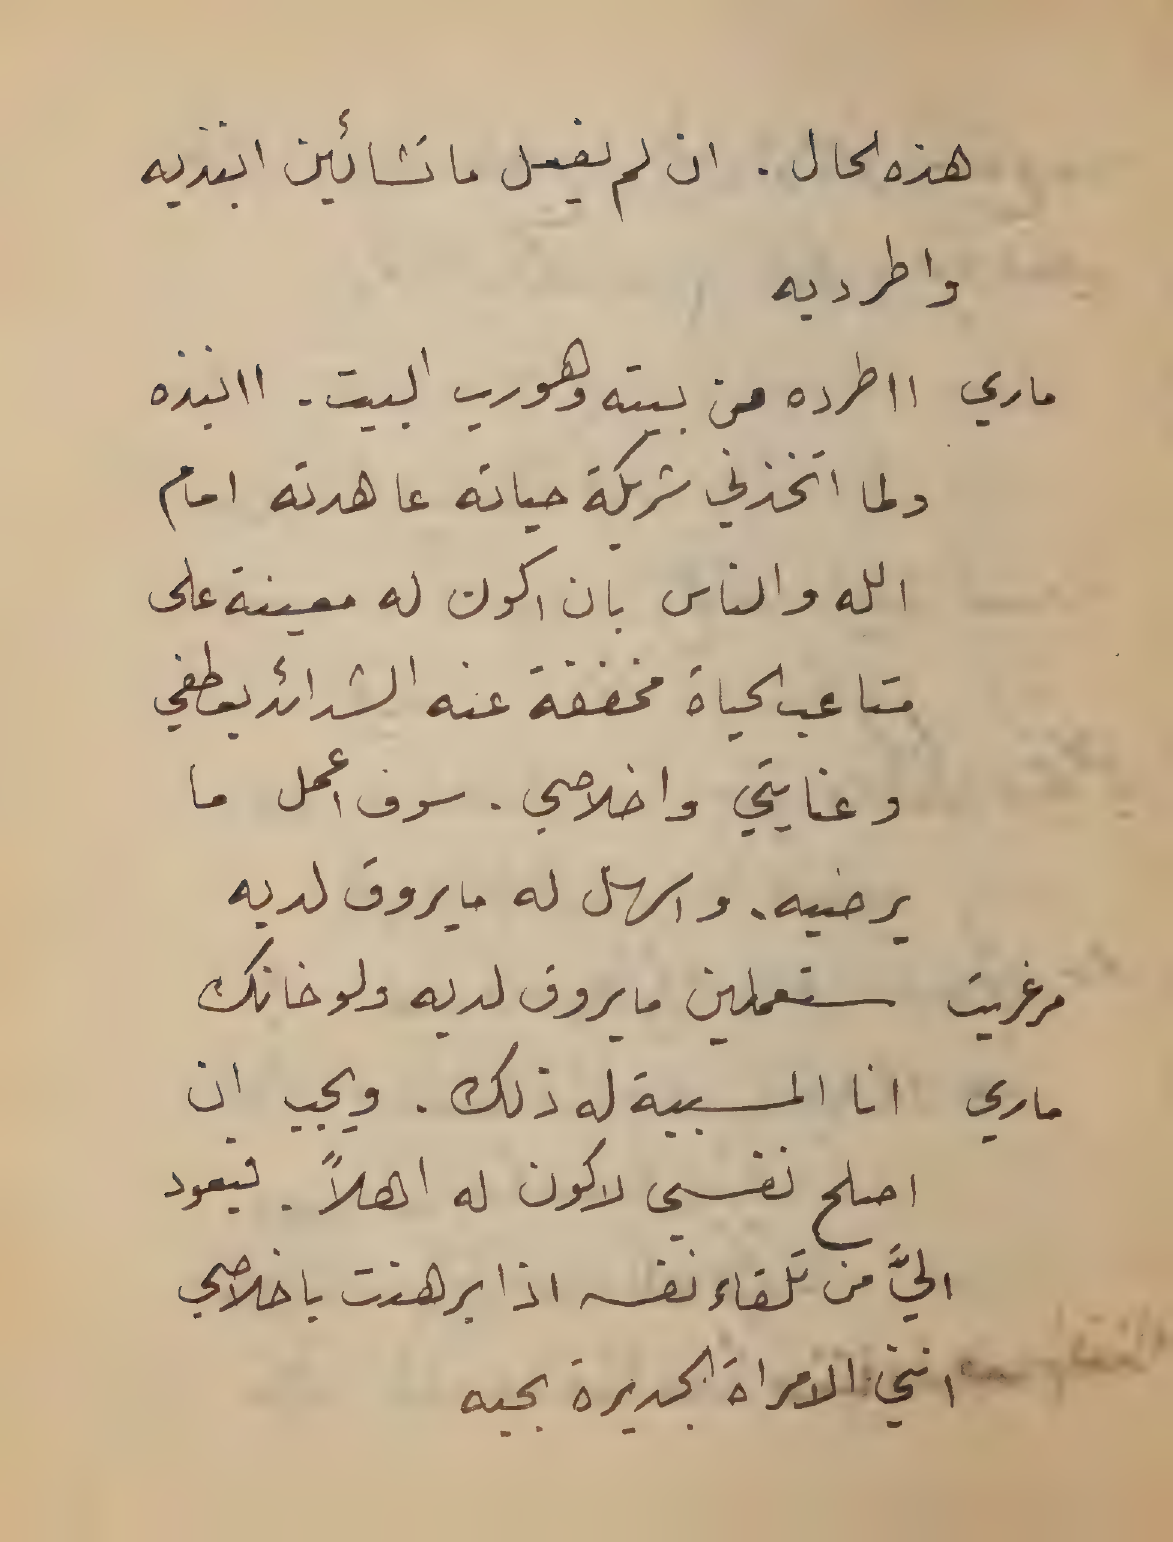 هذه الحال . ان لم يفعل ما تشائين انبذيه
واطرديه
ماري ااطرده من بيته وهو رب البيت . اانبذه
ولما اتخذني شريكة حياته عاهدته امام
الله والناس بان اكون له معينة على
متاعب الحياة مخففة عنه الشدائد بعاطفي
وعنايتي واخلاصي . سوف اعمل ما
يرضيه . واسهل له ما يروق لديه
مرغريت ستعملين ما يروق لديه ولو خانك
ماري انا المسببة له ذلك . ويجب ان
اصلح نفسي لاكون له اهلاً . فيعود
اليَّ من تلقاء نفسه اذا برهنت باخلاصي
انني الامراة الجديرة بحبه